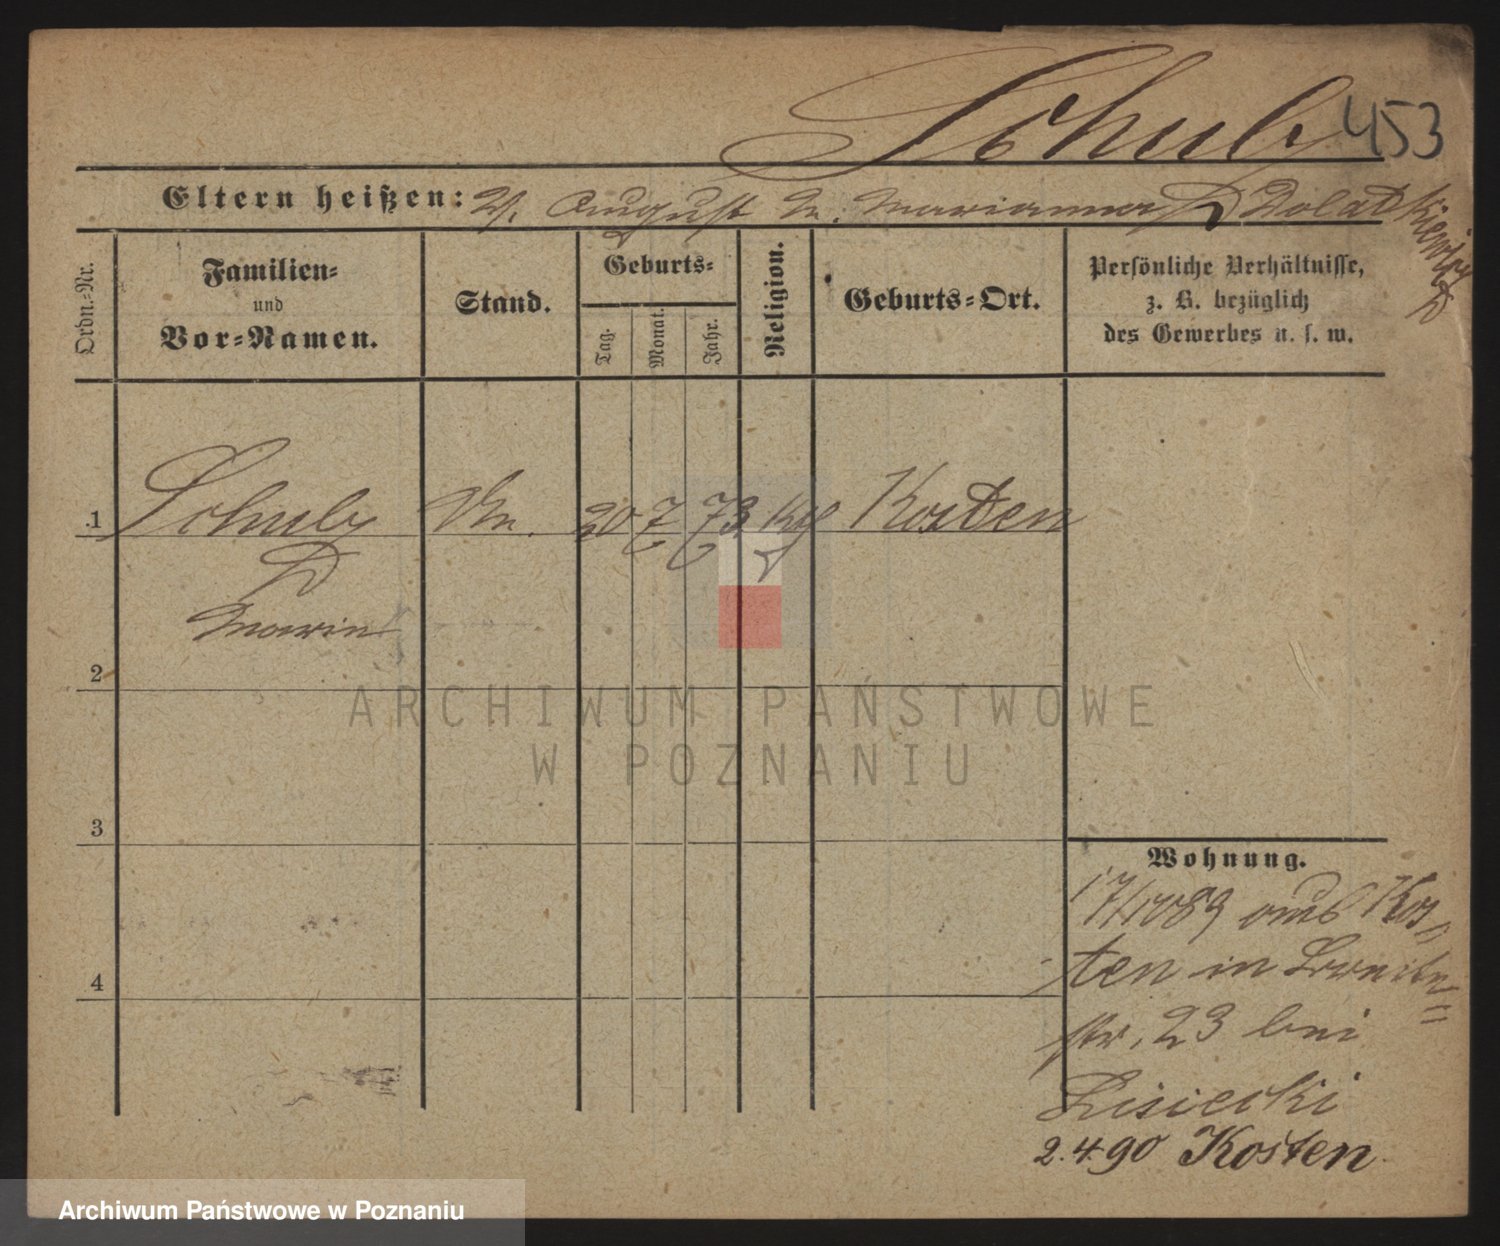 Schulz 453
Eltern heißen: V. August M. Marianna Dolatkiewicz
Ordn.-Nr.
Familien-
und
Vor-Namen.
Stand.
Geburts-
Tag.
Monat.
Jahr.
Religion.
Geburts-Ort.
Persönliche Verhältnisse,
z. B. bezüglich
des Gewerbes u. s. w.
1 Schulz 20 7 73 Kth Kosten
Marie
2
3
4
Wohnung.
89 aus Kos=
ten in
str. 23 bei
Lisiecki
2.4.90 Kosten
ARCHIWUM PAŃSTWOWE
W POZNANIU
Archiwum Państwowe w Poznaniu